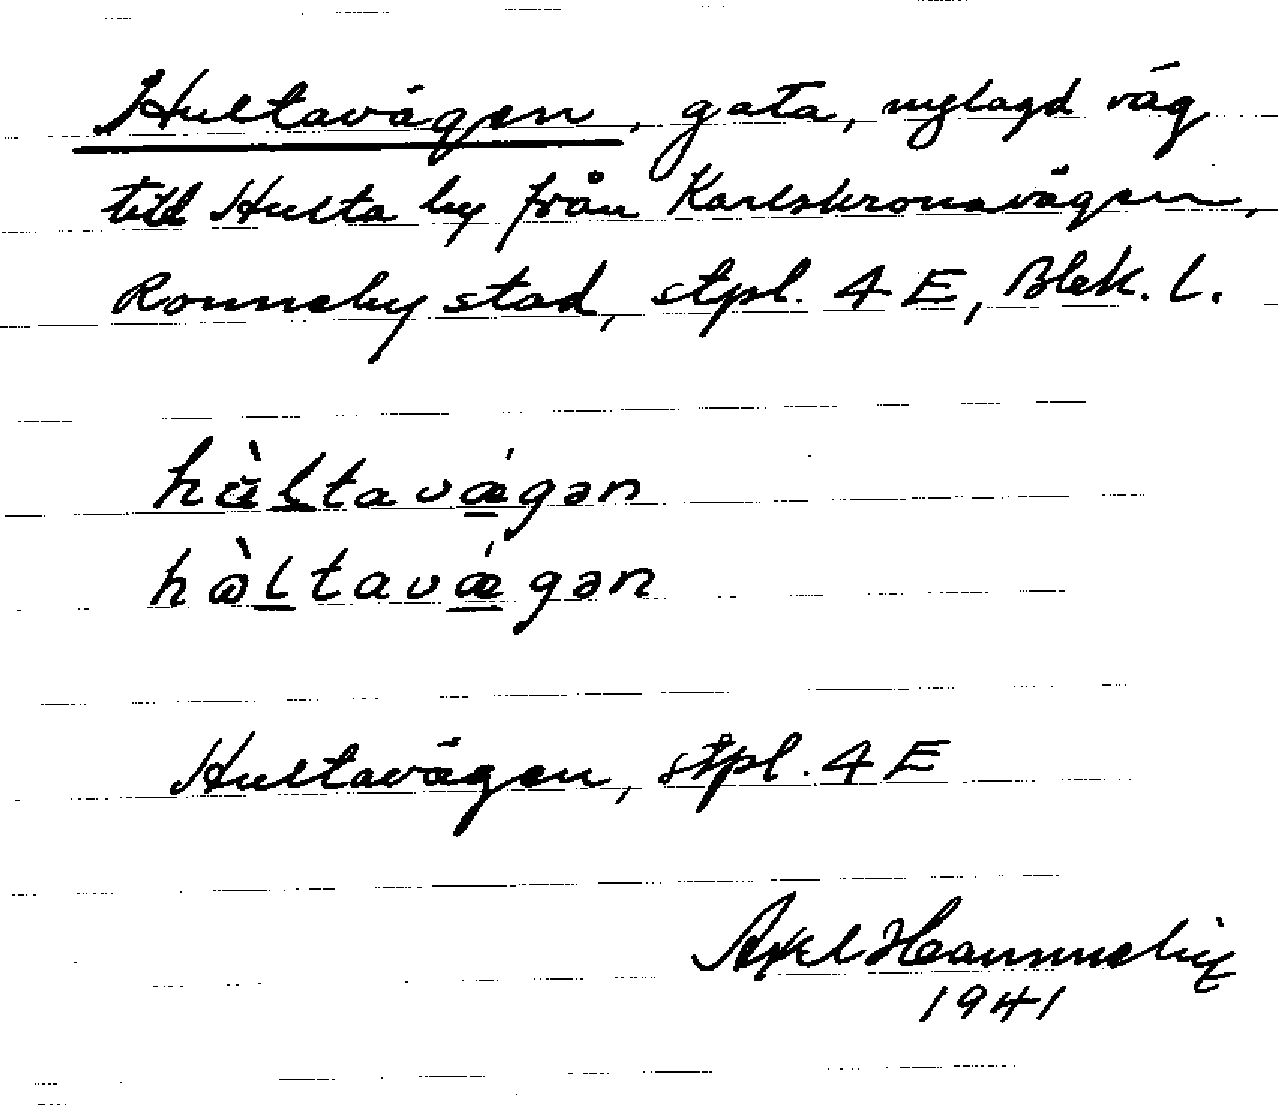 Hultavägen, gata, nylagd väg
till Hulta by från Karlskronavägen,
Ronneby stad, stpl. 4 E, Blek. l.
hɵ̀ltavǽgən
hὼltavǽgən
Hultavägen, stpl. 4 E
Axel
1941